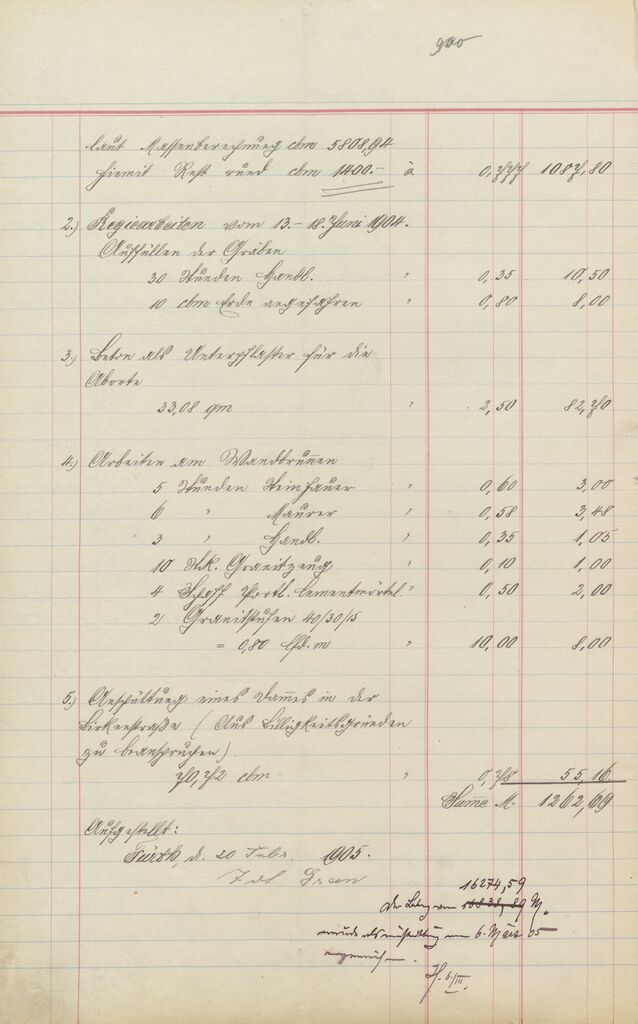 900
laut Massenberechnung cbm 5808,94
hiemit Rest rund cbm 1400.- à 0,777 1087,80
2.) Regiearbeiten vom 13.- 18. Juni 1904.
Auffüllen der Gräben
30 Stunden Handl. " 0,35 10,50
10 cbm Erde angefahren " 0,80 8,00
3.) Beton als Unterpflaster für die
Aborte
33,08 qm " 2,50 82,70
4.) Arbeiten am Wandbrunnen
5 Stunden Steinhauer " 0,60 3,00
6 " Maurer " 0,58 3,48
3 " Handl. " 0,35 1,05
10 Stk. Granitzeug " 0,10 1,00
4 Schaff Portl. Cementmörtel " 0,50 2,00
2 Granitstufen 40/30/15
= 0,80 lfd. m " 10,00 8,00
5.) Anschüttung eines Dammes in der
Birkenstraße (Aus Billigkeitsgründen
zu beanspruchen)
70,72 cbm " 0,78 55,16
Summe M. 1262,69
Aufgestellt:
Fürth, d. 20 Febr. 1905.
16274,59
Der Betrag von 16838,89 M.
wurde als am 6. März 05
H. 6/III.